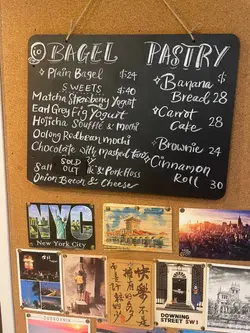 BAGEL
Plain Bagel $24
SWEETS $40
Matcha Strawberry Yogurt
Earl Grey Fig Yogurt
Hojicha Souffle & Mochi
Oolong Redbean mochi
Chocolate w/ Mashed taro
SOLD
OUT & Pork Floss
Onion Bacon & Cheese
PASTRY
Banana
Bread 28
Carrot
Cake 28
Brownie 24
Cinnamon
Roll 30
NYC
New York City
DOWNING
STREET SW1
快樂
不是